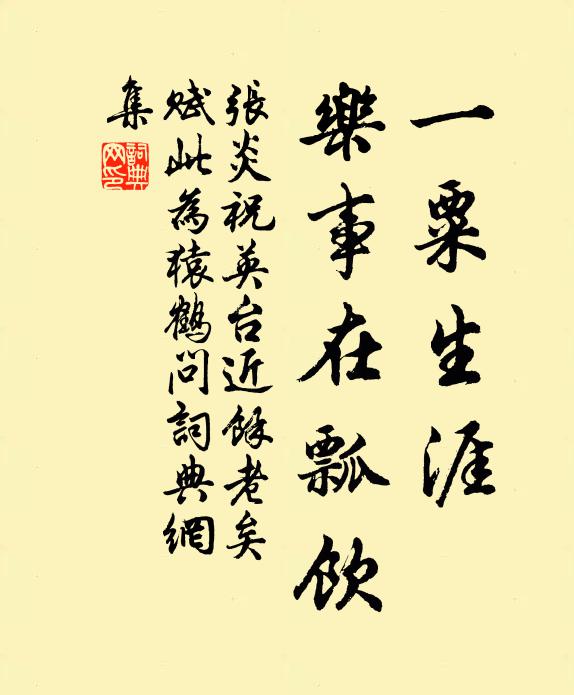 一粟生涯
樂事在瓢飲
張炎祝英台近餘老矣
賦此為猿鶴問詞典網
集
詞典
网印